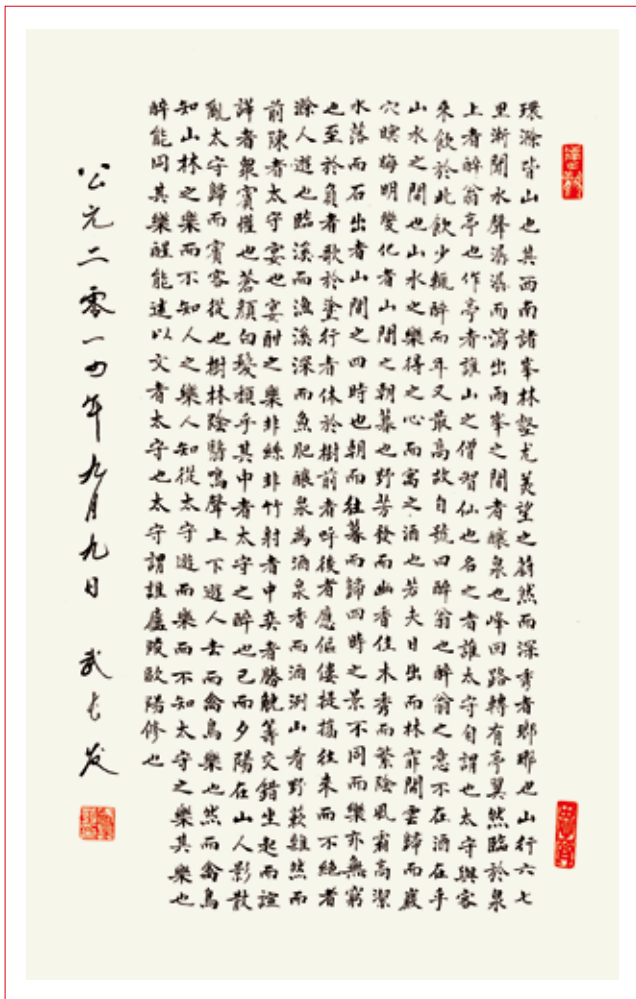 環滁皆山也其西南諸峯林壑尤美望之蔚然而深秀者瑯琊也山行六七
里漸聞水聲潺潺而瀉出兩峯之間者釀泉也峰回路轉有亭翼然臨於泉
上者醉翁亭也作亭者誰山之僧智仙也名之者誰太守自謂也太守與客
來飲於此飲少輒醉而年又最高故自號曰醉翁也醉翁之意不在酒在乎
山水之間也山水之樂得之心而寓之酒也若夫日出而林霏開雲歸而巖
穴暝晦明變化者山間之朝暮也野芳發而幽香佳木秀而繁陰風霜高潔
水落而石出者山間之四時也朝而往暮而歸四時之景不同而樂亦無窮
也至於負者歌於塗行者休於樹前者呼後者應傴僂提攜往來而不絕者
滁人遊也臨溪而漁溪深而魚肥釀泉為酒泉香而酒洌山肴野蔌雜然而
前陳者太守宴也宴酣之樂非絲非竹射者中奕者勝觥籌交錯坐起而諠
譁者衆賓懽也蒼顏白髮頹乎其中者太守之醉也已而夕陽在山人影散
亂太守歸而賓客從也樹林陰翳鳴聲上下遊人去而禽鳥樂也然而禽鳥
知山林之樂而不知人之樂人知從太守遊而樂而不知太守之樂其樂也
醉能同其樂醒能述以文者太守也太守謂誰廬陵歐陽修也
公元二零一四年九月九日 武長發